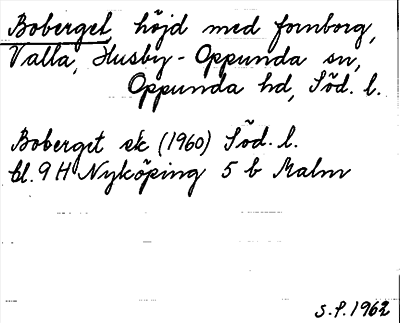 Boberget, höjd med fornborg,
Valla, Husby-Oppunda sn,
Oppunda hd, Söd. l.
Boberget ek (1960) Söd. l.
bl. 9 H Nyköping 5 b Malm
S.P. 1962